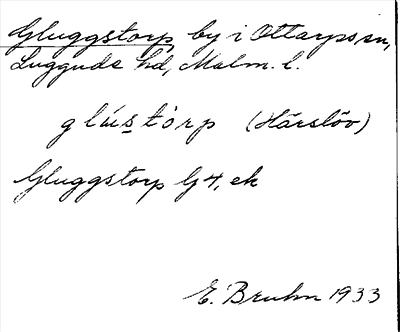 Gluggstorp, by i Ottarps sn,
Luggude hd, Malm. l.
glu̇stòrp (Härslöv)
Gluggstorp G 4, ek
E. Bruhn 1933